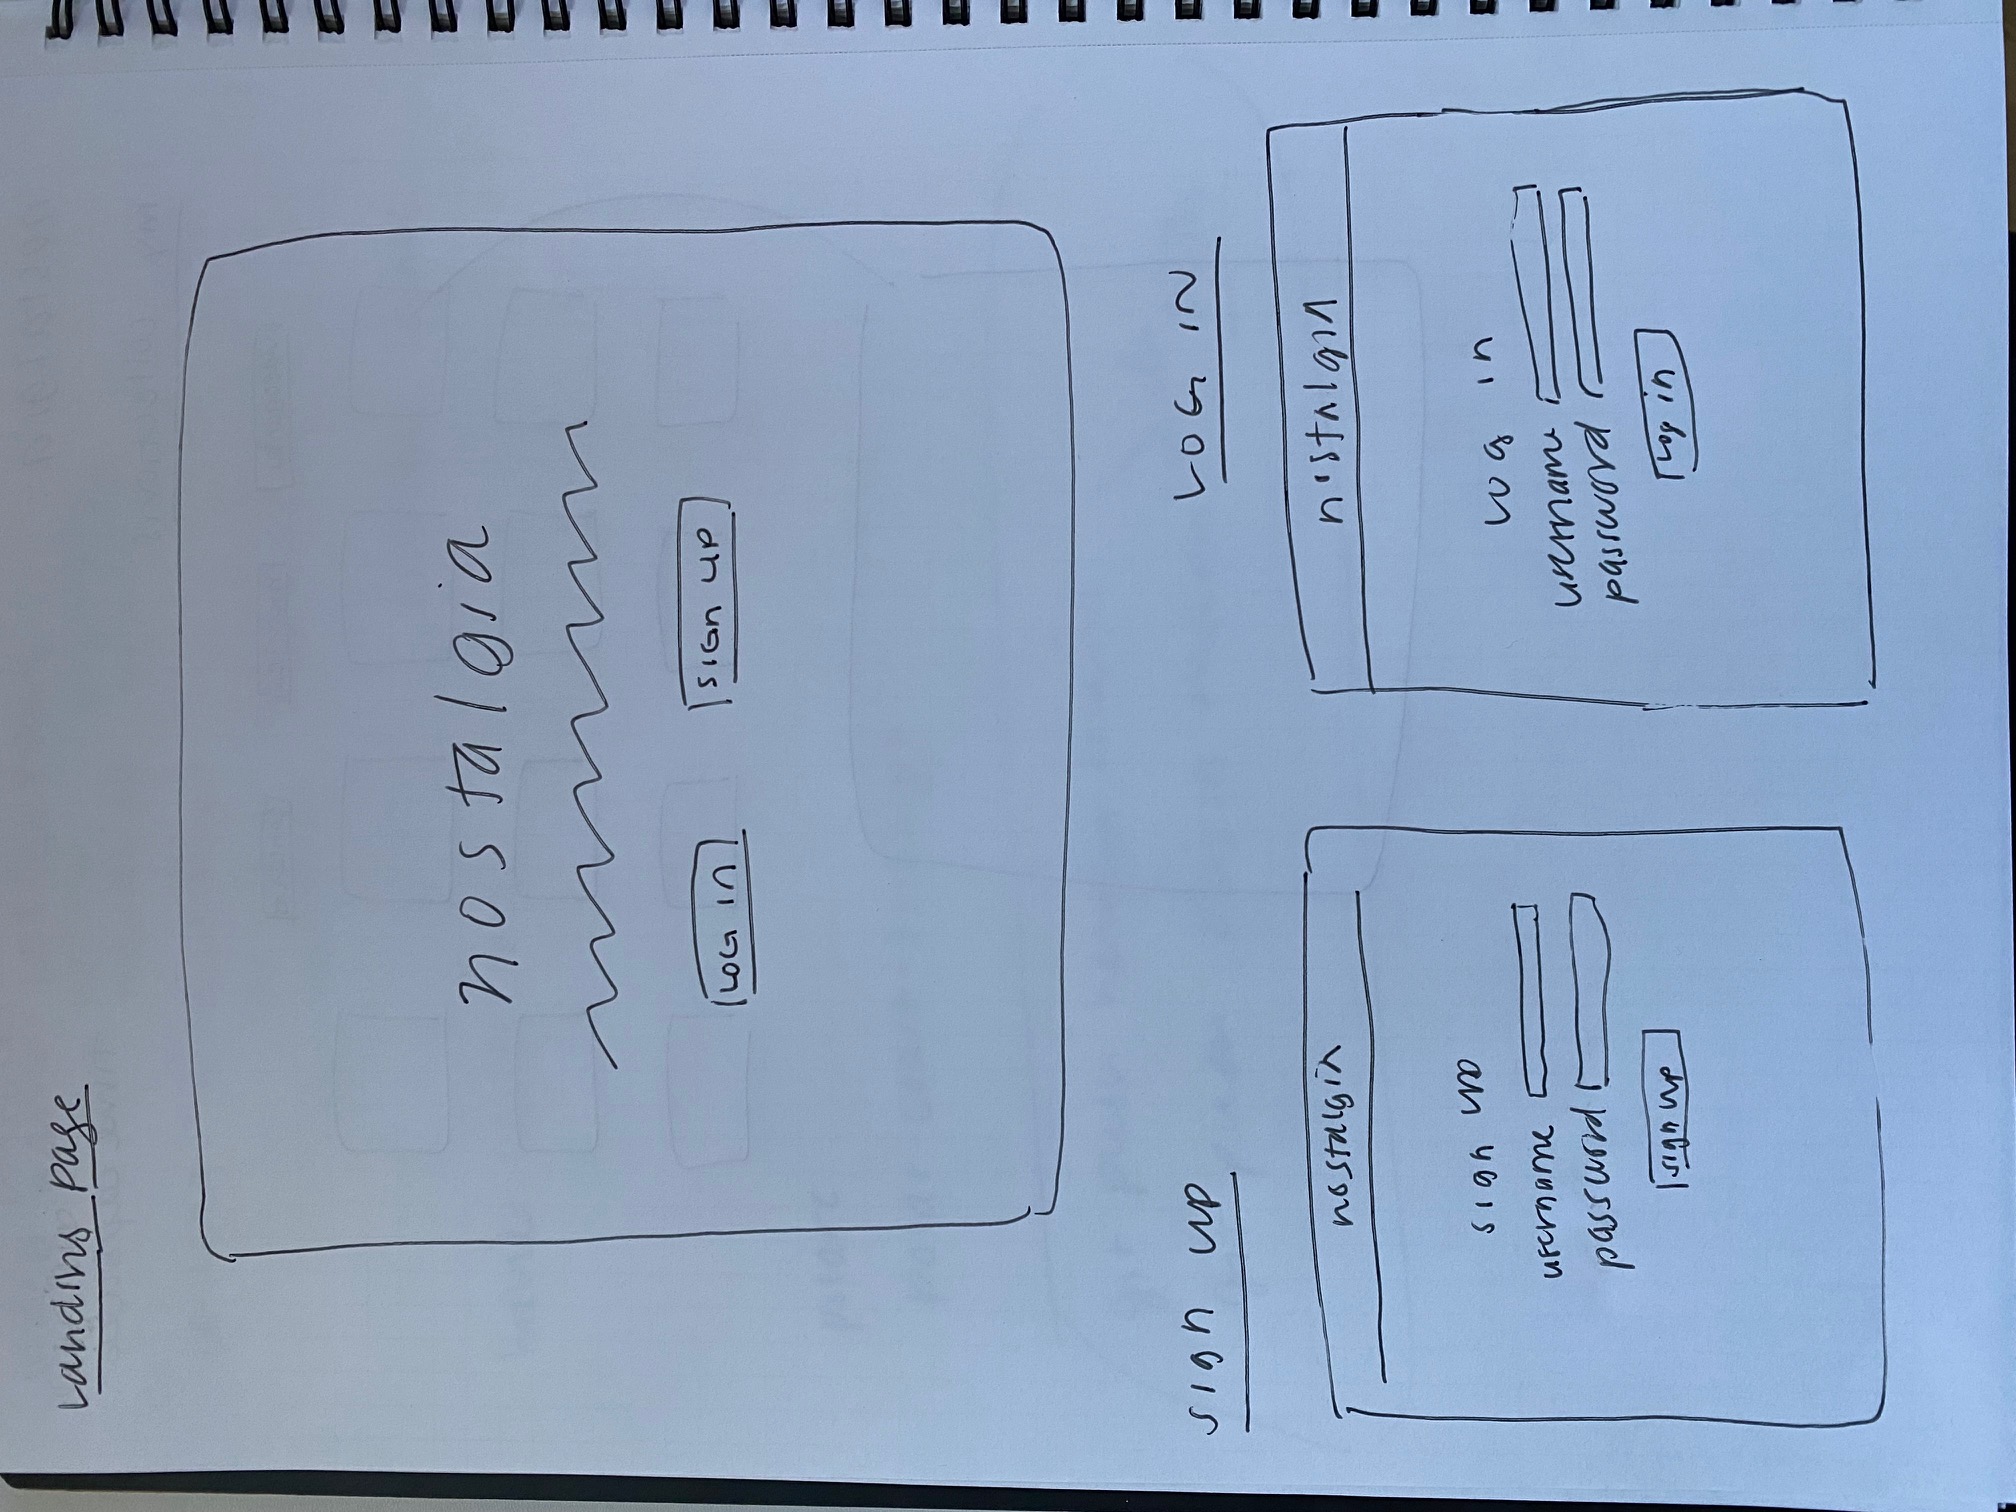 Landing page
nostalgia
LOG IN
SIGN UP
sign up
LOG IN
nostalgia
sign up
username
password
sign up
nostalgia
Log in
username
password
Log in